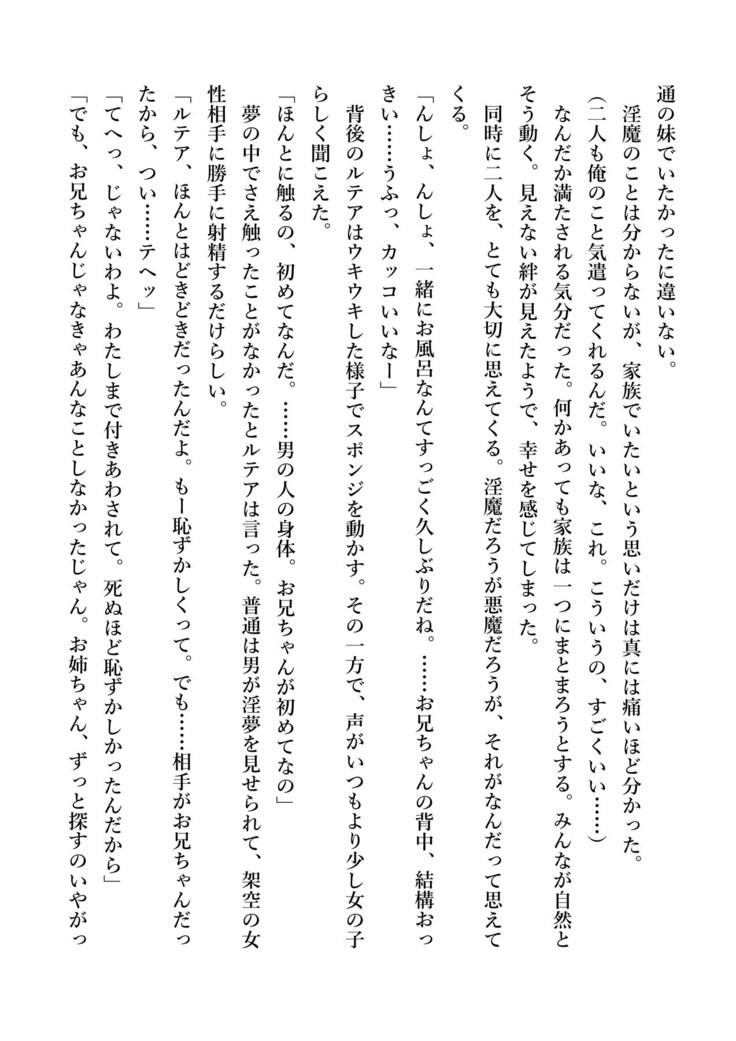 通の妹でいたかったに違いない。
淫魔のことは分からないが、家族でいたいという思いだけは真には痛いほど分かった。
（二人も俺のこと気遣ってくれるんだ。いいな、これ。こういうの、すごくいい……）
なんだか満たされる気分だった。何かあっても家族は一つにまとまろうとする。みんなが自然と
そう動く。見えない絆が見えたようで、幸せを感じてしまった。
同時に二人を、とても大切に思えてくる。淫魔だろうが悪魔だろうが、それがなんだって思えて
くる。
「んしょ、んしょ、一緒にお風呂なんてすっごく久しぶりだね。……お兄ちゃんの背中、結構おっ
きい……うふっ、カッコいいなー」
背後のルテアはウキウキした様子でスポンジを動かす。その一方で、声がいつもより少し女の子
らしく聞こえた。
「ほんとに触るの、初めてなんだ。……男の人の身体。お兄ちゃんが初めてなの」
夢の中でさえ触ったことがなかったとルテアは言った。普通は男が淫夢を見せられて、架空の女
性相手に勝手に射精するだけらしい。
「ルテア、ほんとはどきどきだったんだよ。もー恥ずかしくって。でも……相手がお兄ちゃんだっ
たから、つい……テヘッ」
「てへっ、じゃないわよ。わたしまで付きあわされて。死ぬほど恥ずかしかったんだから」
「でも、お兄ちゃんじゃなきゃあんなことしなかったじゃん。お姉ちゃん、ずっと探すのいやがっ